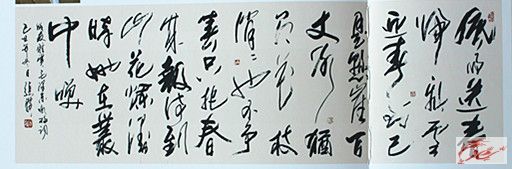 風雨送春
歸飛雪
迎春到已
是懸崖百
丈冰猶
有花枝
俏〻也不爭
春只把春
來報待到
山花爛漫
時她在叢
中笑